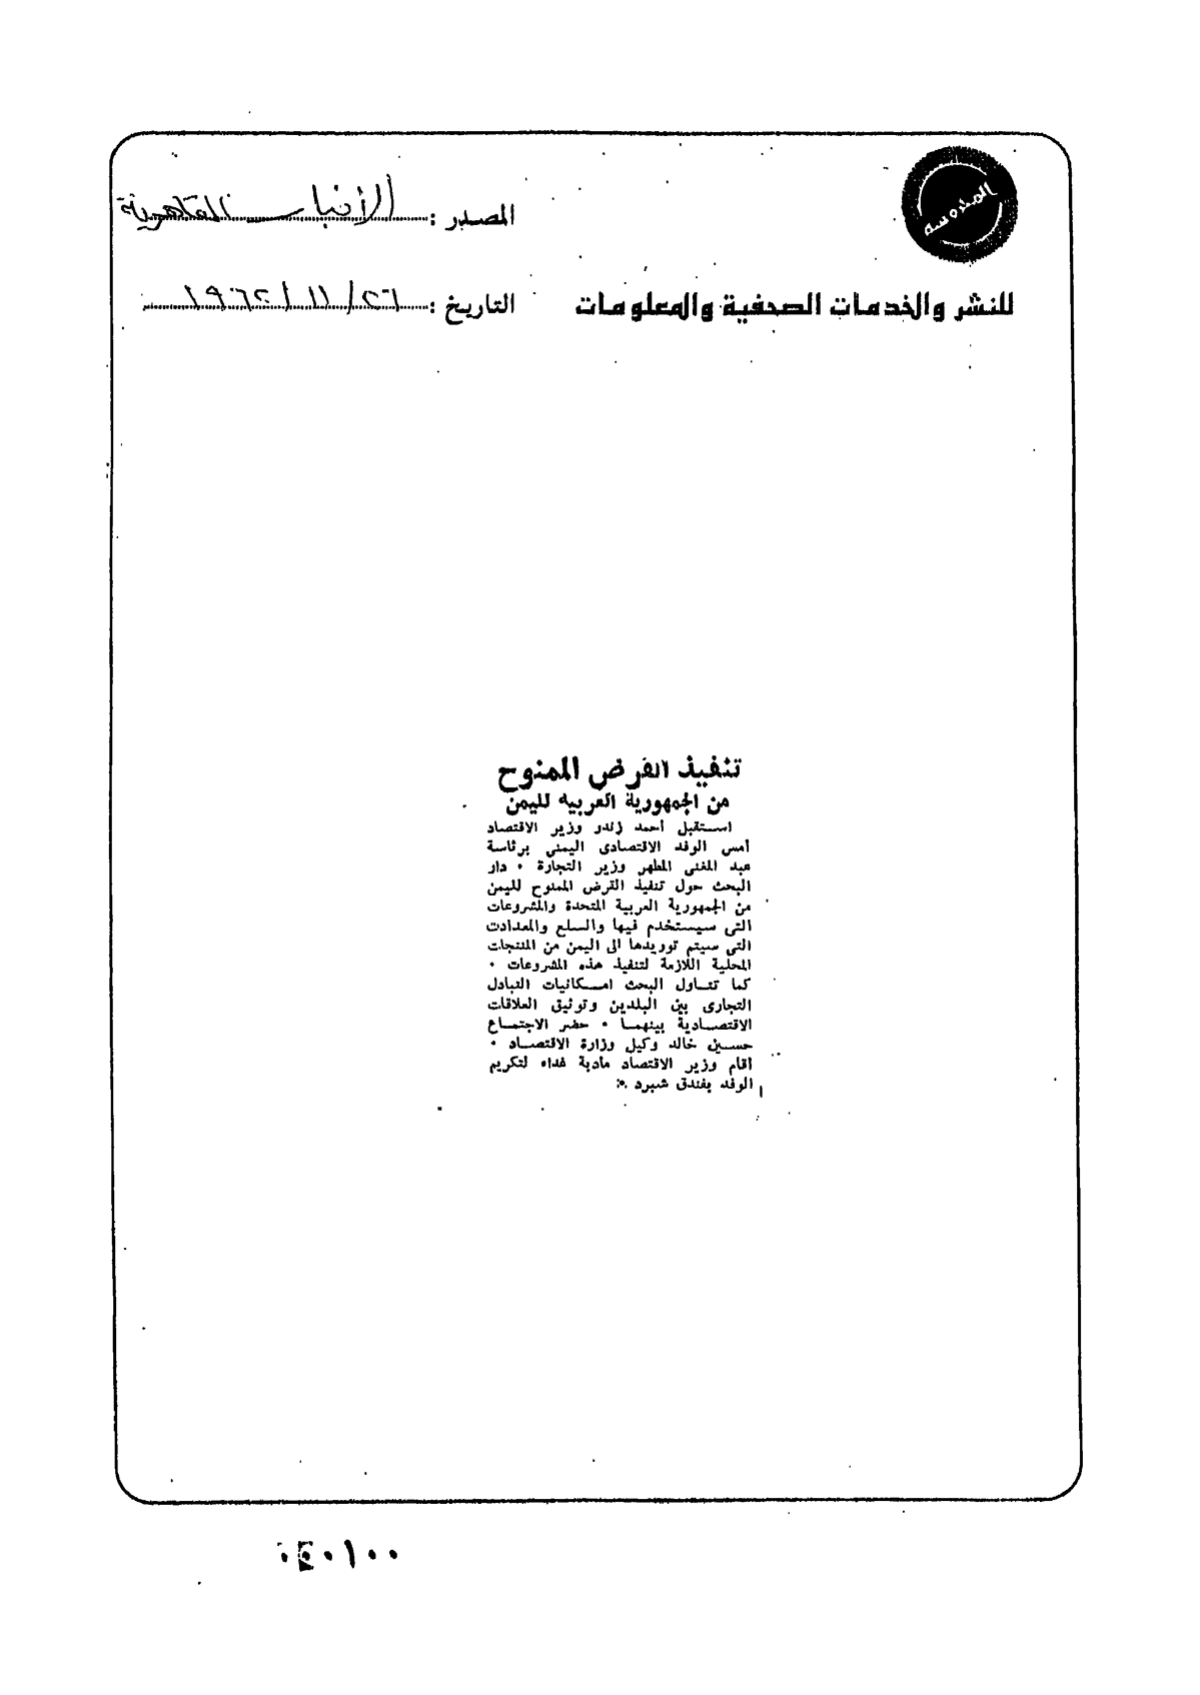 المدوسه
المصدر : الأنباء القاهرية
للنشر والخدمات الصحفية والمعلومات
التاريخ : ٢٦ / ١١ / ١٩٦٢
تنفيذ القرض الممنوح
من الجمهورية العربيه لليمن
استقبل أحمد زندو وزير الاقتصاد
أمس الوفد الاقتصادى اليمني برئاسة
عبد الغنى المطهر وزير التجارة . دار
البحث حول تنفيذ القرض الممنوح لليمن
من الجمهورية العربية المتحدة والمشروعات
التى سيستخدم فيها والسلع والمعدادت
التى سيتم توريدها الى اليمن من المنتجات
المحلية اللازمة لتنفيذ هذه المشروعات .
كما تناول البحث امكانيات التبادل
التجارى بين البلدين وتوثيق العلاقات
الاقتصادية بينهما . حضر الاجتماع
حسين خالد وكيل وزارة الاقتصاد .
أقام وزير الاقتصاد مأدبة غداء لتكريم
الوفد بفندق شبرد .